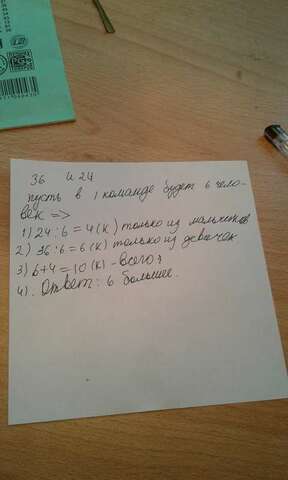 36 и 24
пусть в 1 команде будет 6 чело-
век =>
1) 24 : 6 = 4 (к) только из мальчиков
2) 36 : 6 = 6 (к) только из девочек
3) 6+4 = 10 (к) - всего
4). Ответ: 6 большее.